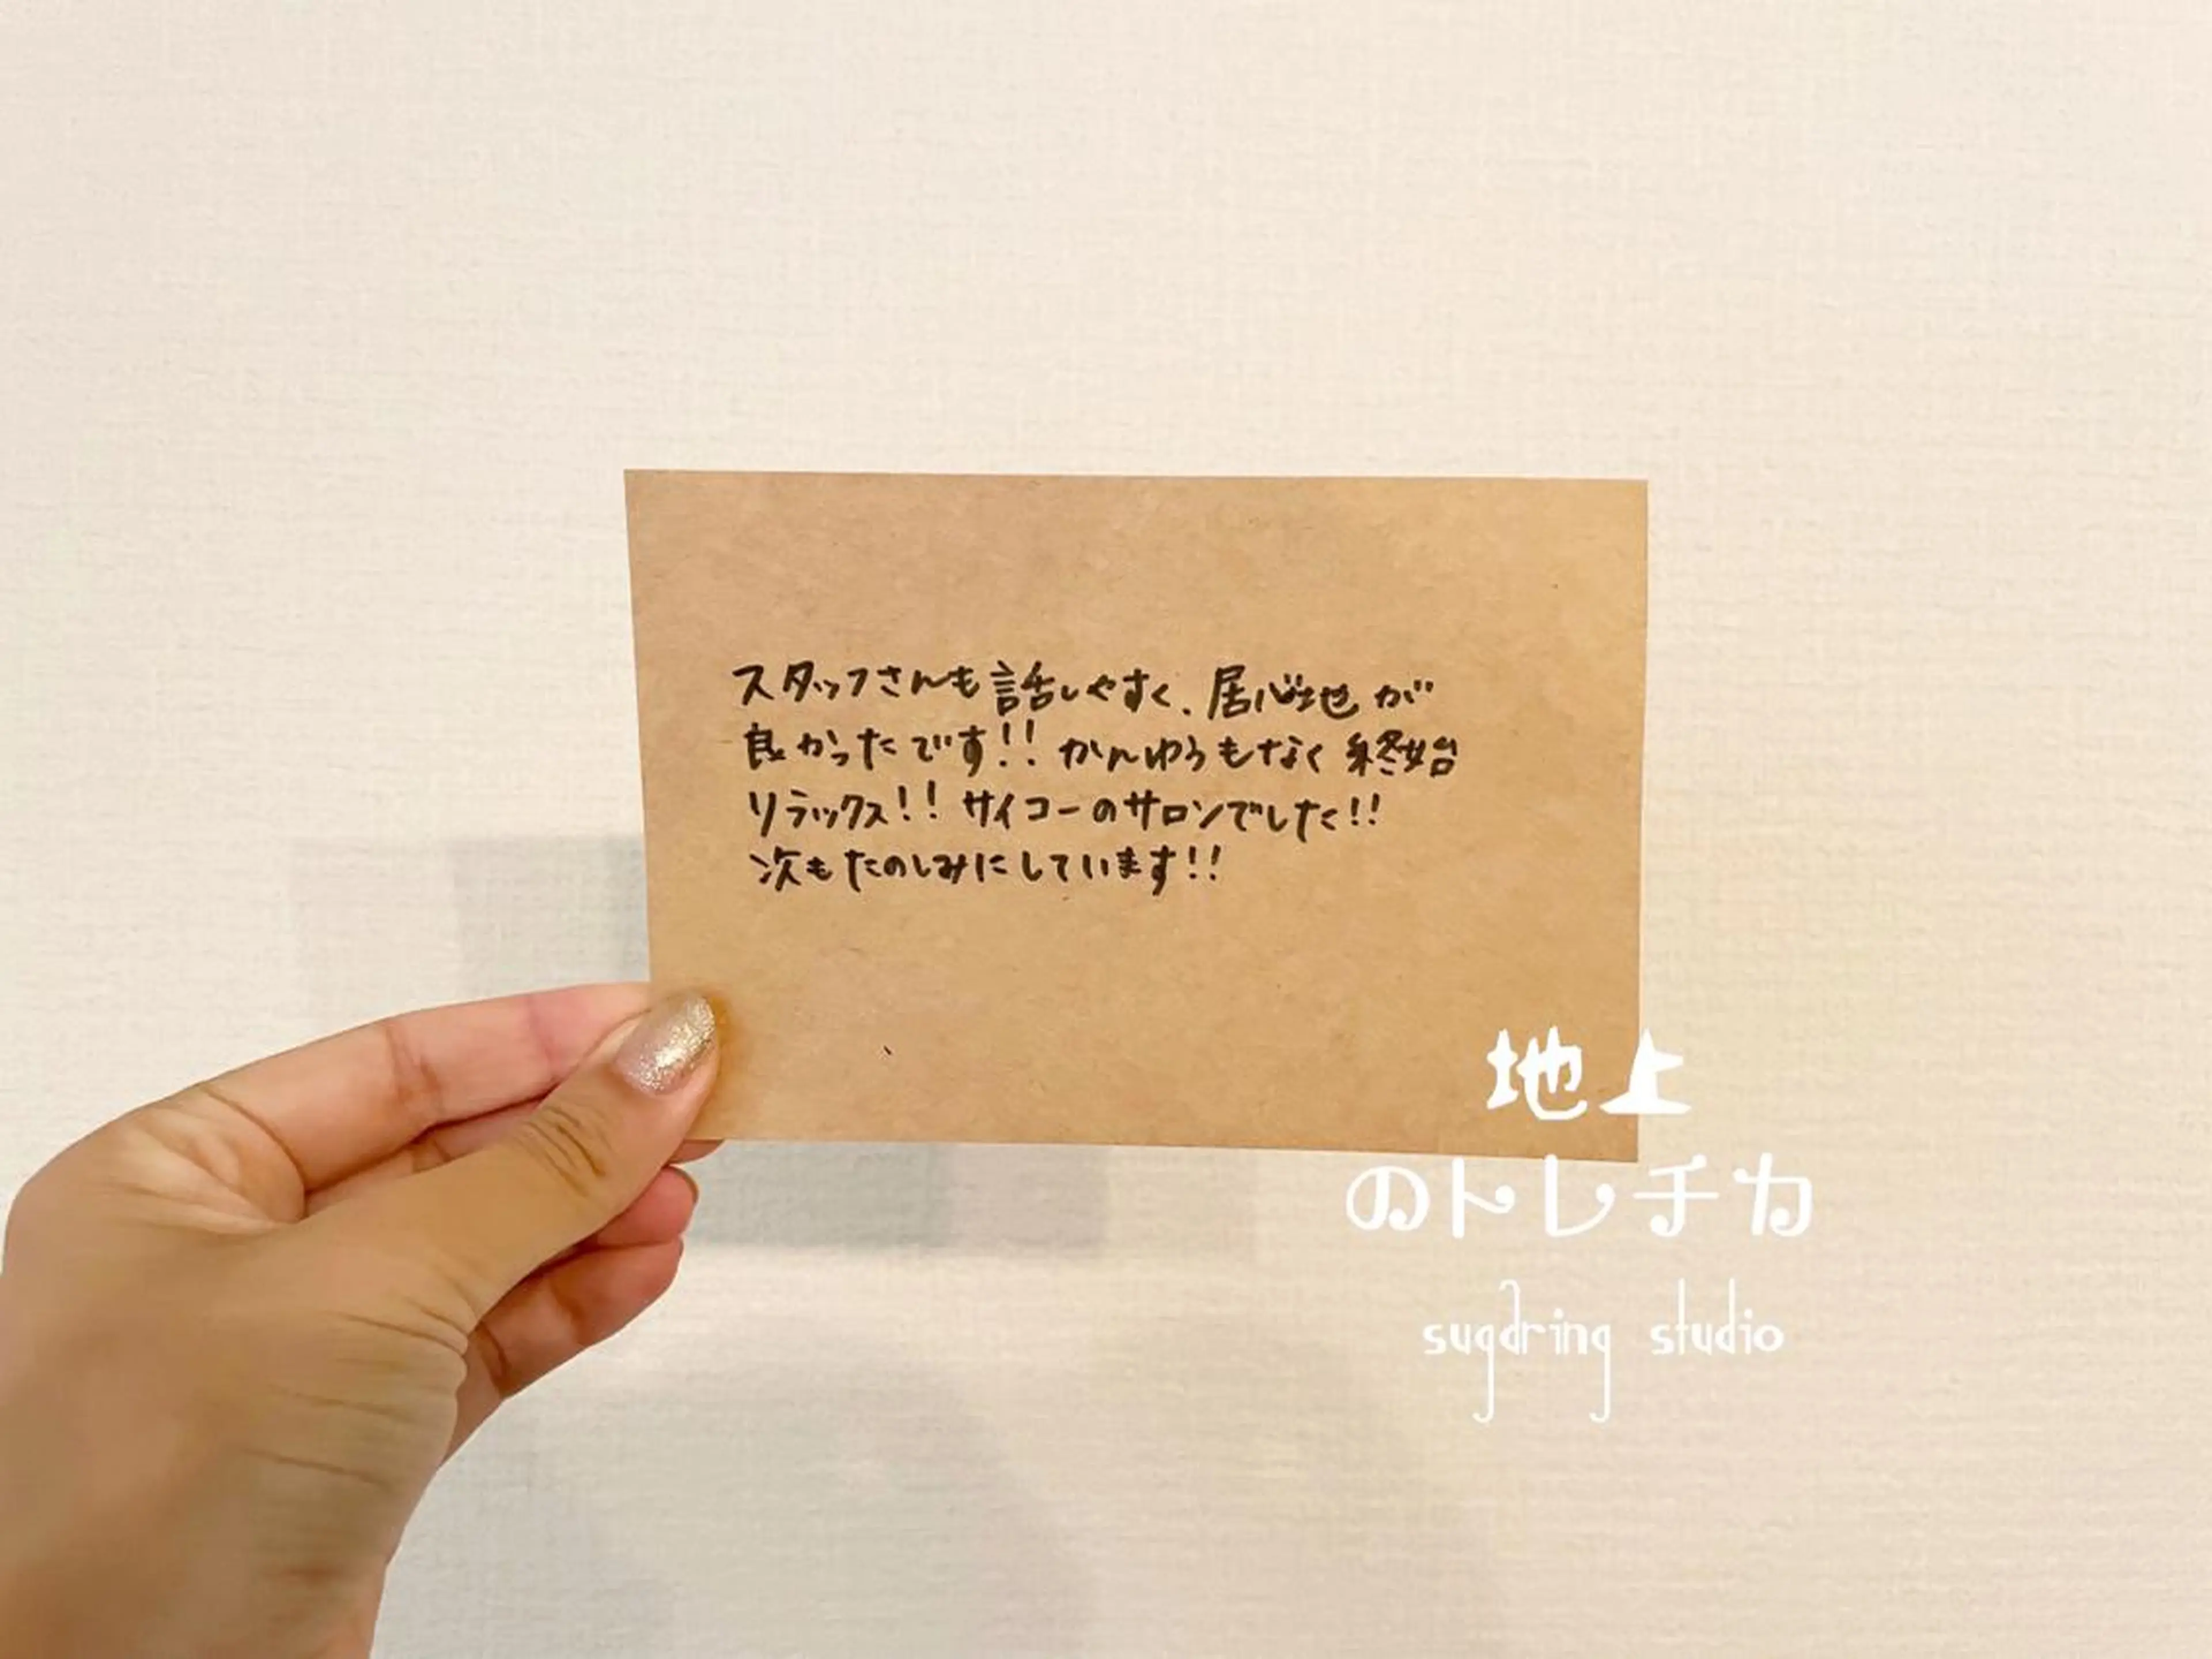 スタッフさんも話しやすく、居心地が
良かったです!! かんゆうもなく終始
リラックス!! サイコーのサロンでした!!
次もたのしみにしています!!
地上
のトレチカ
sugaring studio